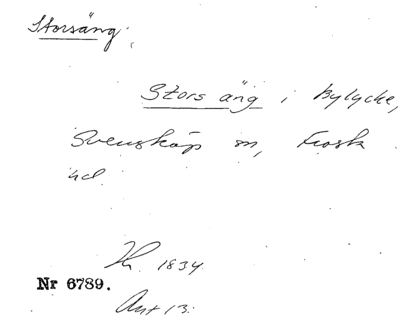 Storsäng.
Stors äng i Bylycke,
Svensköp sn, Frosta
hd.
1834
Nr 6789.
Akt 13.